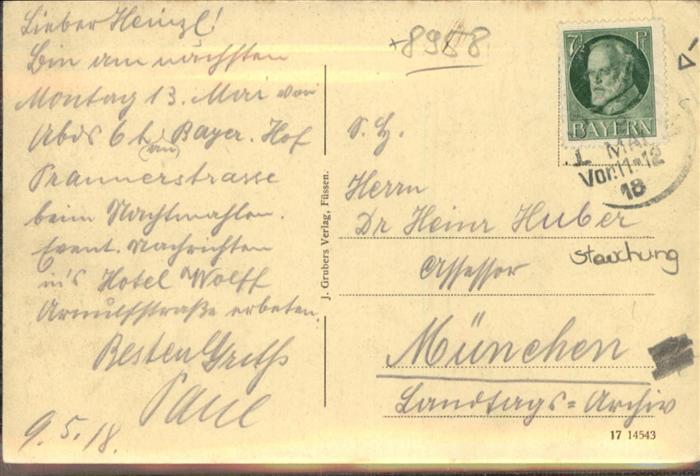 Lieber Heinzl!
Bin am nächsten
Montag 13. Mai von
Abds 6 h (an) Bayer. Hof
Prannerstrasse
beim Nachtmahlen.
Event. Nachrichten
in's Hotel Wolff
Arnulfstraße erbeten.
Besten Gruß
Paul
9.5.18.
J. Grubers Verlag, Füssen.
8958
7½ Pf
BAYERN
MAI
Vor.11-12
18
S. H.
Herrn
Dr Heinr Huber
Assessor
Stauchung
München
Landtags=Archiv
17 14543